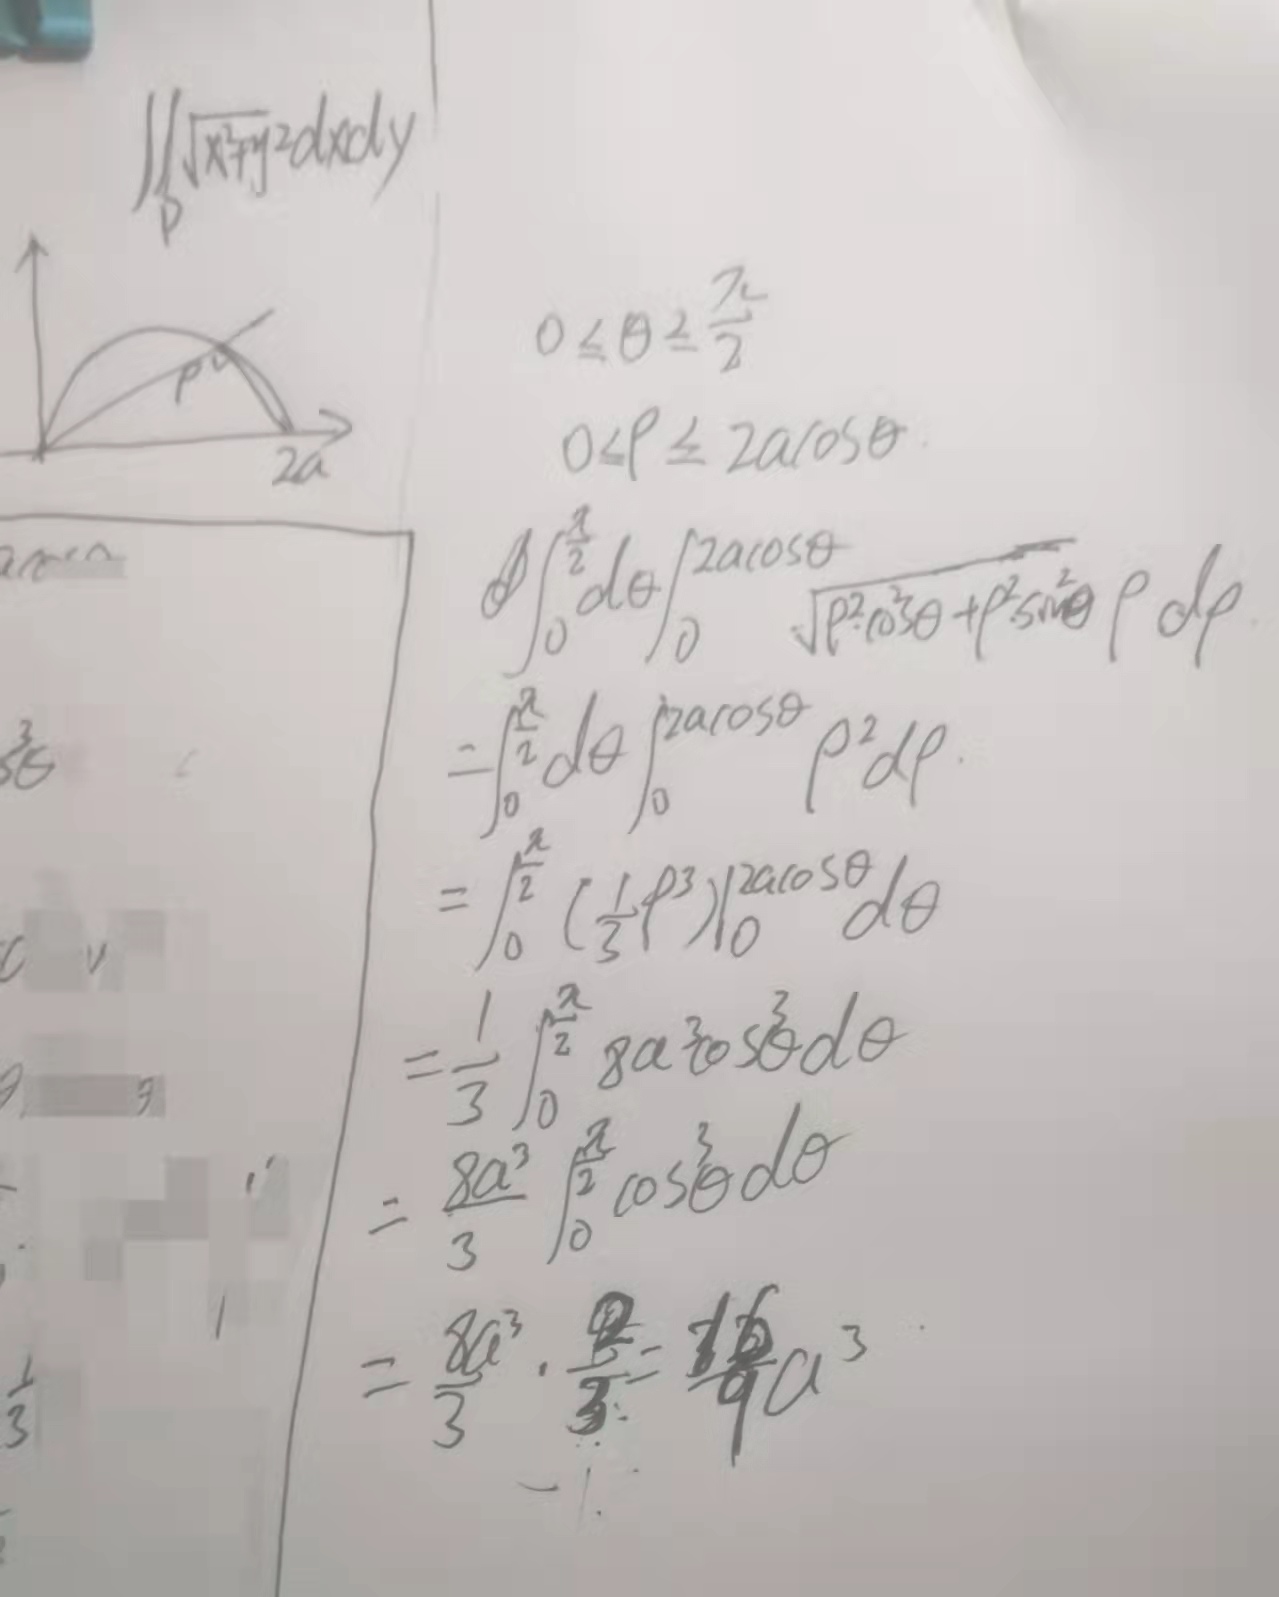 ∬_D √(x²+y²) dxdy
ρ
2a
0 ≤ θ ≤ π/2
0 ≤ ρ ≤ 2acosθ
∫_0^{π/2} dθ ∫_0^{2acosθ} √(ρ²cos²θ + ρ²sin²θ) ρ dρ
= ∫_0^{π/2} dθ ∫_0^{2acosθ} ρ² dρ.
= ∫_0^{π/2} (1/3 ρ³)|_0^{2acosθ} dθ
= 1/3 ∫_0^{π/2} 8a³cos³θ dθ
= 8a³/3 ∫_0^{π/2} cos³θ dθ
= 8a³/3 · 2/3 = 16/9 a³
1/3